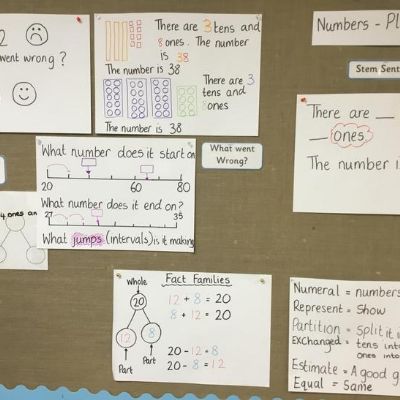 2
went wrong?
There are 3 tens and
8 ones. The number
is 38
The number is 38
There are 3
tens and
8 ones
The number is 38
Numbers - Pl
Stem Sent
There are __
__ ones.
The number i
What number does it start on
20 60 80
What number does it end on?
27 35
What jumps (intervals) is it making
What went
Wrong?
4 ones an
Fact Families
Whole
20
12 8
Part Part
12 + 8 = 20
8 + 12 = 20
20 - 12 = 8
20 - 8 = 12
Numeral = numbers
Represent = Show
Partition = Split it i
Exchanged = tens into
Ones into
Estimate = A good g
Equal = Same